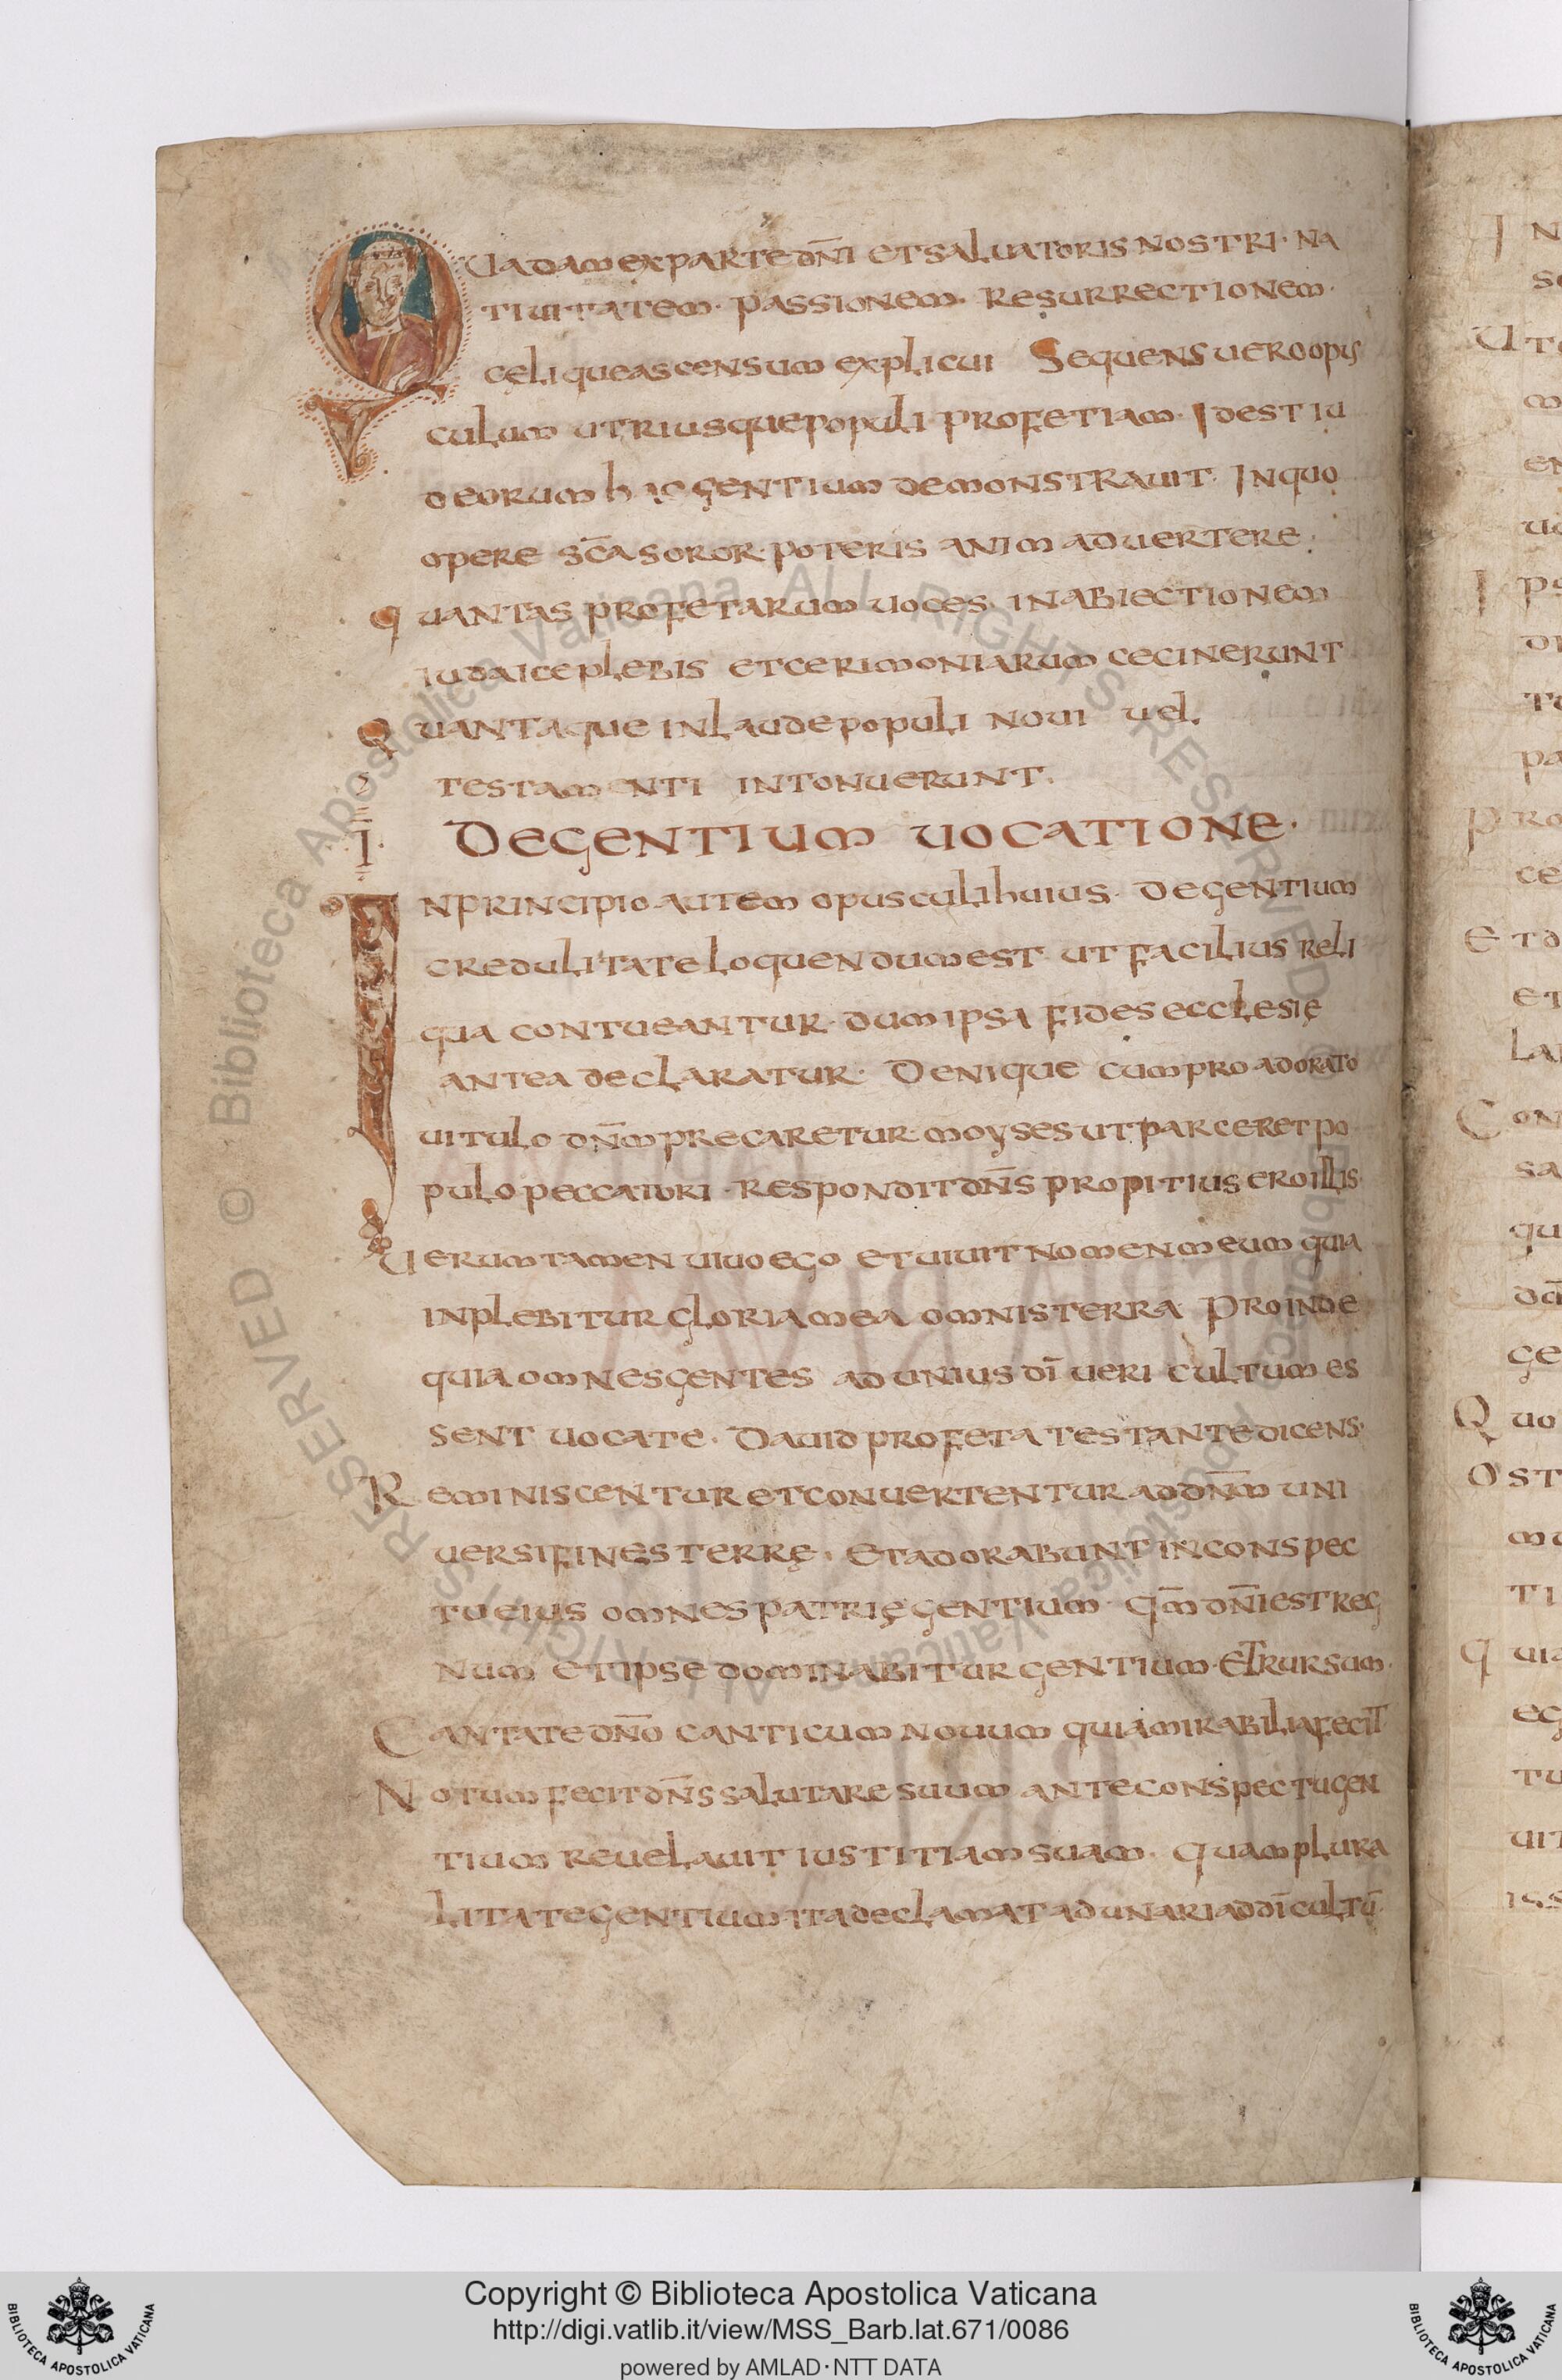 QUADAMEXPARTEDN̄I ETSALUATORIS NOSTRI· NA
TIUITATEM· PASSIONEM· RESURRECTIONEM·
CĘLIQUEASCENSUM EXPLICUI SEQUENS UERO OPUS
CULUM UTRIUSQUEPOPULI PROFETIAM· IDEST IU
DEORUM GENTIUM DEMONSTRAUIT· INQUO
OPERE SC̄A SOROR· POTERIS ANIMADUERTERE·
QUANTAS PROFETARUM UOCES· INABIECTIONEM
IUDAICEPLEBIS ETCERIMONIARUM CECINERUNT
QUANTAQUE INLAUDEPOPULI NOUI UEL
TESTAMENTI INTONUERUNT·
Ī· DEGENTIUM UOCATIONE·
INPRINCIPIO AUTEM OPUSCULIHUIUS· DEGENTIUM
CREDULITATELOQUENDUMEST UT FACILIUS RELI
QUA CONTUEANTUR· DUMIPSA FIDES ECCLESIĘ
ANTEA DECLARATUR· DENIQUE CUMPRO ADORATO
UITULO DN̄MPRECARETUR· MOYSES UTPARCERET PO
PULO PECCATORI· RESPONDITDN̄S PROPITIUS EROILLIS·
UERUMTAMEN UIUOEGO ETUIUIT NOMENMEUM QUIA
INPLEBITUR GLORIAMEA OMNISTERRA PROINDE
QUIAOMNESGENTES ADUNIUS DĪ UERI CULTUM ES
SENT UOCATE· DAUID PROFETA TESTANTE DICENS·
REMINISCENTUR ETCONUERTENTUR ADDN̄M UNI
UERSIFINES TERRĘ· ETADORABUNT INCONSPEC
TU EIUS OMNESPATRIĘGENTIUM· QM̄ DN̄IEST REG
NUM ETIPSE DOMINABITUR GENTIUM· ETRURSUM·
CANTATE DN̄O CANTICUM NOUUM QUIAMIRABILIAFECIT
NOTUMFECITDN̄S SALUTARE SUUM ANTECONSPECTUGEN
TIUM REUELAUIT IUSTITIAM SUAM· QUAMPLURA
LITATEGENTIUM ITADECLAMAT ADUNARIADDĪCULTŪ
Copyright © Biblioteca Apostolica Vaticana
http://digi.vatlib.it/view/MSS_Barb.lat.671/0086
powered by AMLAD·NTT DATA
BIBLIOTECA APOSTOLICA VATICANA
BIBLIOTECA APOSTOLICA VATICANA